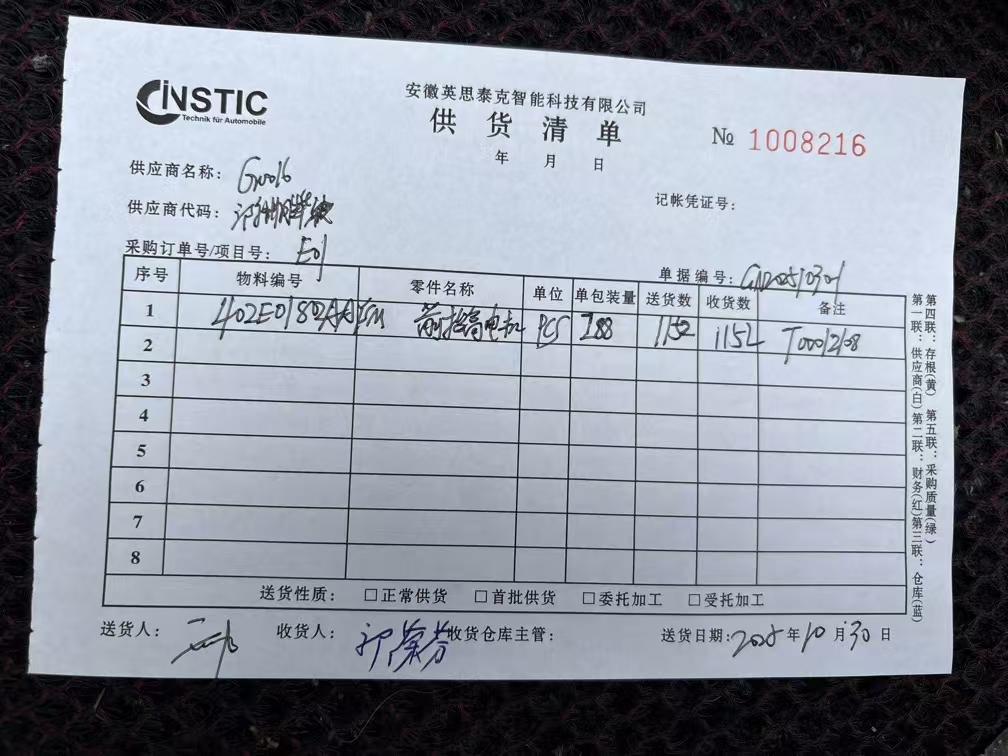 INSTIC
Technik für Automobile
安徽英思泰克智能科技有限公司
供货清单
№ 1008216
年 月 日
供应商名称：
记帐凭证号：
供应商代码：
采购订单号/项目号： E01
单据编号：
序号 物料编号 零件名称 单位 单包装量 送货数 收货数 备注
1 PCS 288 1152 1152
2
3
4
5
6
7
8
送货性质： □正常供货 □首批供货 □委托加工 □受托加工
送货人： 收货人： 收货仓库主管： 送货日期：2025年10月30日
第一联：供应商(白) 第二联：财务(红) 第三联：仓库(蓝)
第四联：存根(黄) 第五联：采购质量(绿)